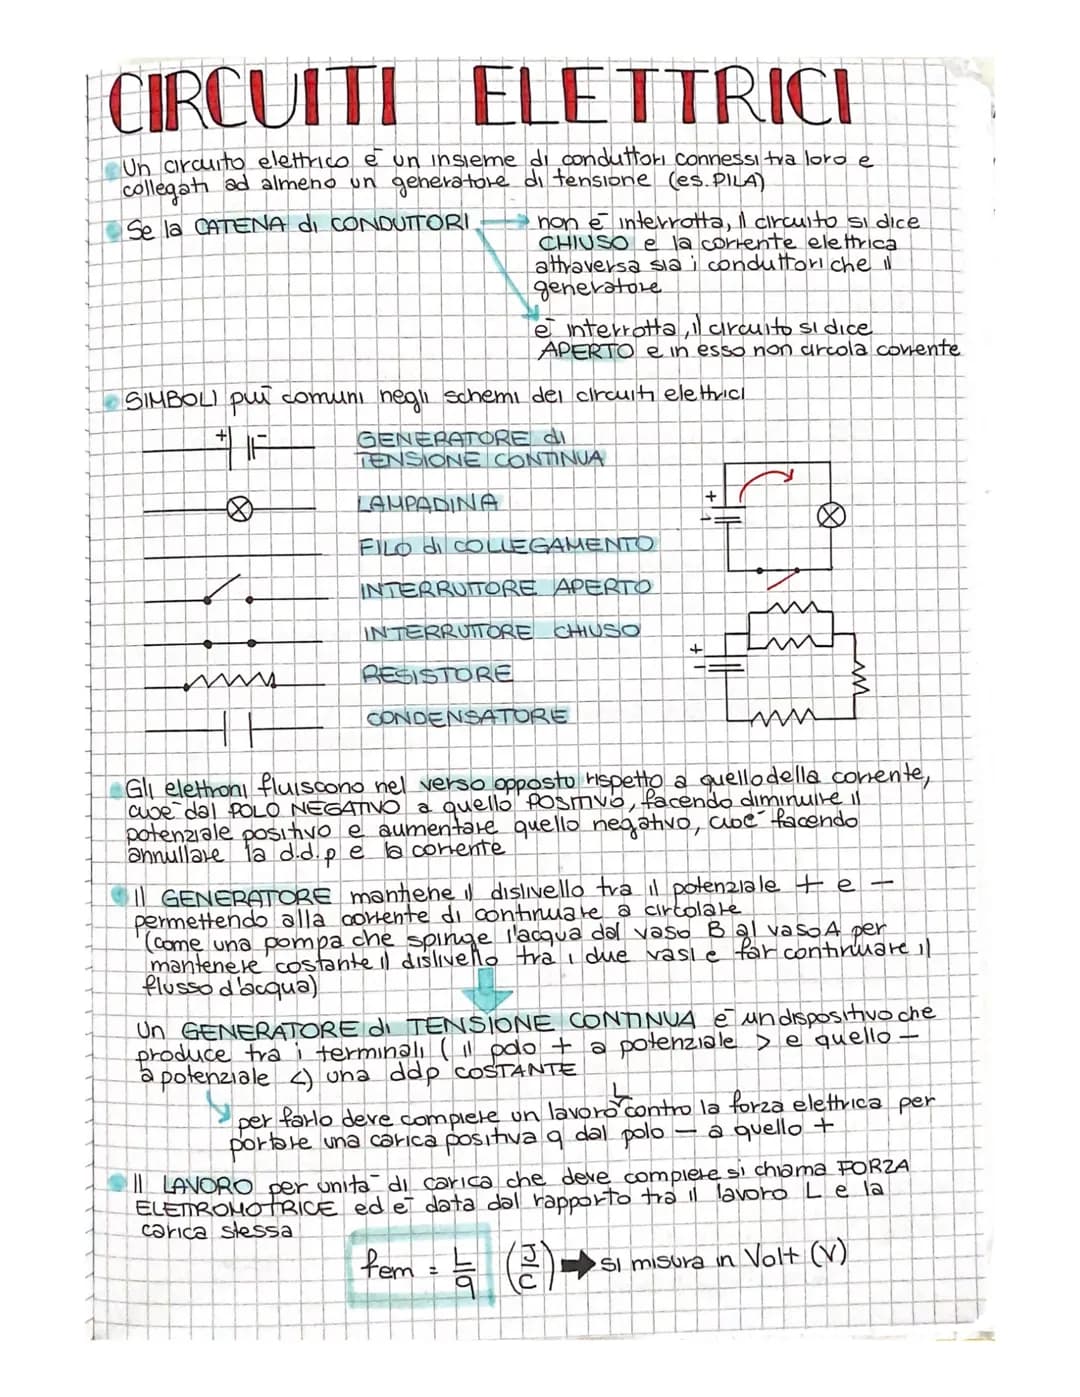 CIRCUITI ELETTRICI
Un circuito elettrico è un insieme di conduttori connessi tra loro e
collegati ad almeno un generatore di tensione (es. PILA)
Se la CATENA di CONDUTTORI
non è interrotta, il circuito si dice
CHIUSO e la corrente elettrica
attraversa sia i conduttori che il
generatore
è interrotta, il circuito si dice
APERTO e in esso non circola corrente
SIMBOLI puì comuni negli schemi dei circuiti elettrici
+ -
GENERATORE di
TENSIONE CONTINUA
LAMPADINA
FILO di COLLEGAMENTO
INTERRUTTORE APERTO
INTERRUTTORE CHIUSO
RESISTORE
CONDENSATORE
+
-
+
-
Gli elettroni fluiscono nel verso opposto rispetto a quello della corrente,
cioè dal POLO NEGATIVO a quello POSITIVO, facendo diminuire il
potenziale positivo e aumentare quello negativo, cioè facendo
annullare la d.d.p e la corrente
Il GENERATORE mantiene il dislivello tra il potenziale + e -
permettendo alla corrente di continuare a circolare
(come una pompa che spinge l'acqua dal vaso B al vaso A per
mantenere costante il dislivello tra i due vasi e far continuare il
flusso d'acqua)
Un GENERATORE di TENSIONE CONTINUA è un dispositivo che
produce tra i terminali (il polo + a potenziale > e quello -
a potenziale <) una ddp COSTANTE
per farlo deve compiere un lavoro L contro la forza elettrica per
portare una carica positiva q dal polo - a quello +
Il LAVORO per unità di carica che deve compiere si chiama FORZA
ELETTROMOTRICE ed è data dal rapporto tra il lavoro L e la
carica stessa
fem = L/q (J/C) ➡ si misura in Volt (V)